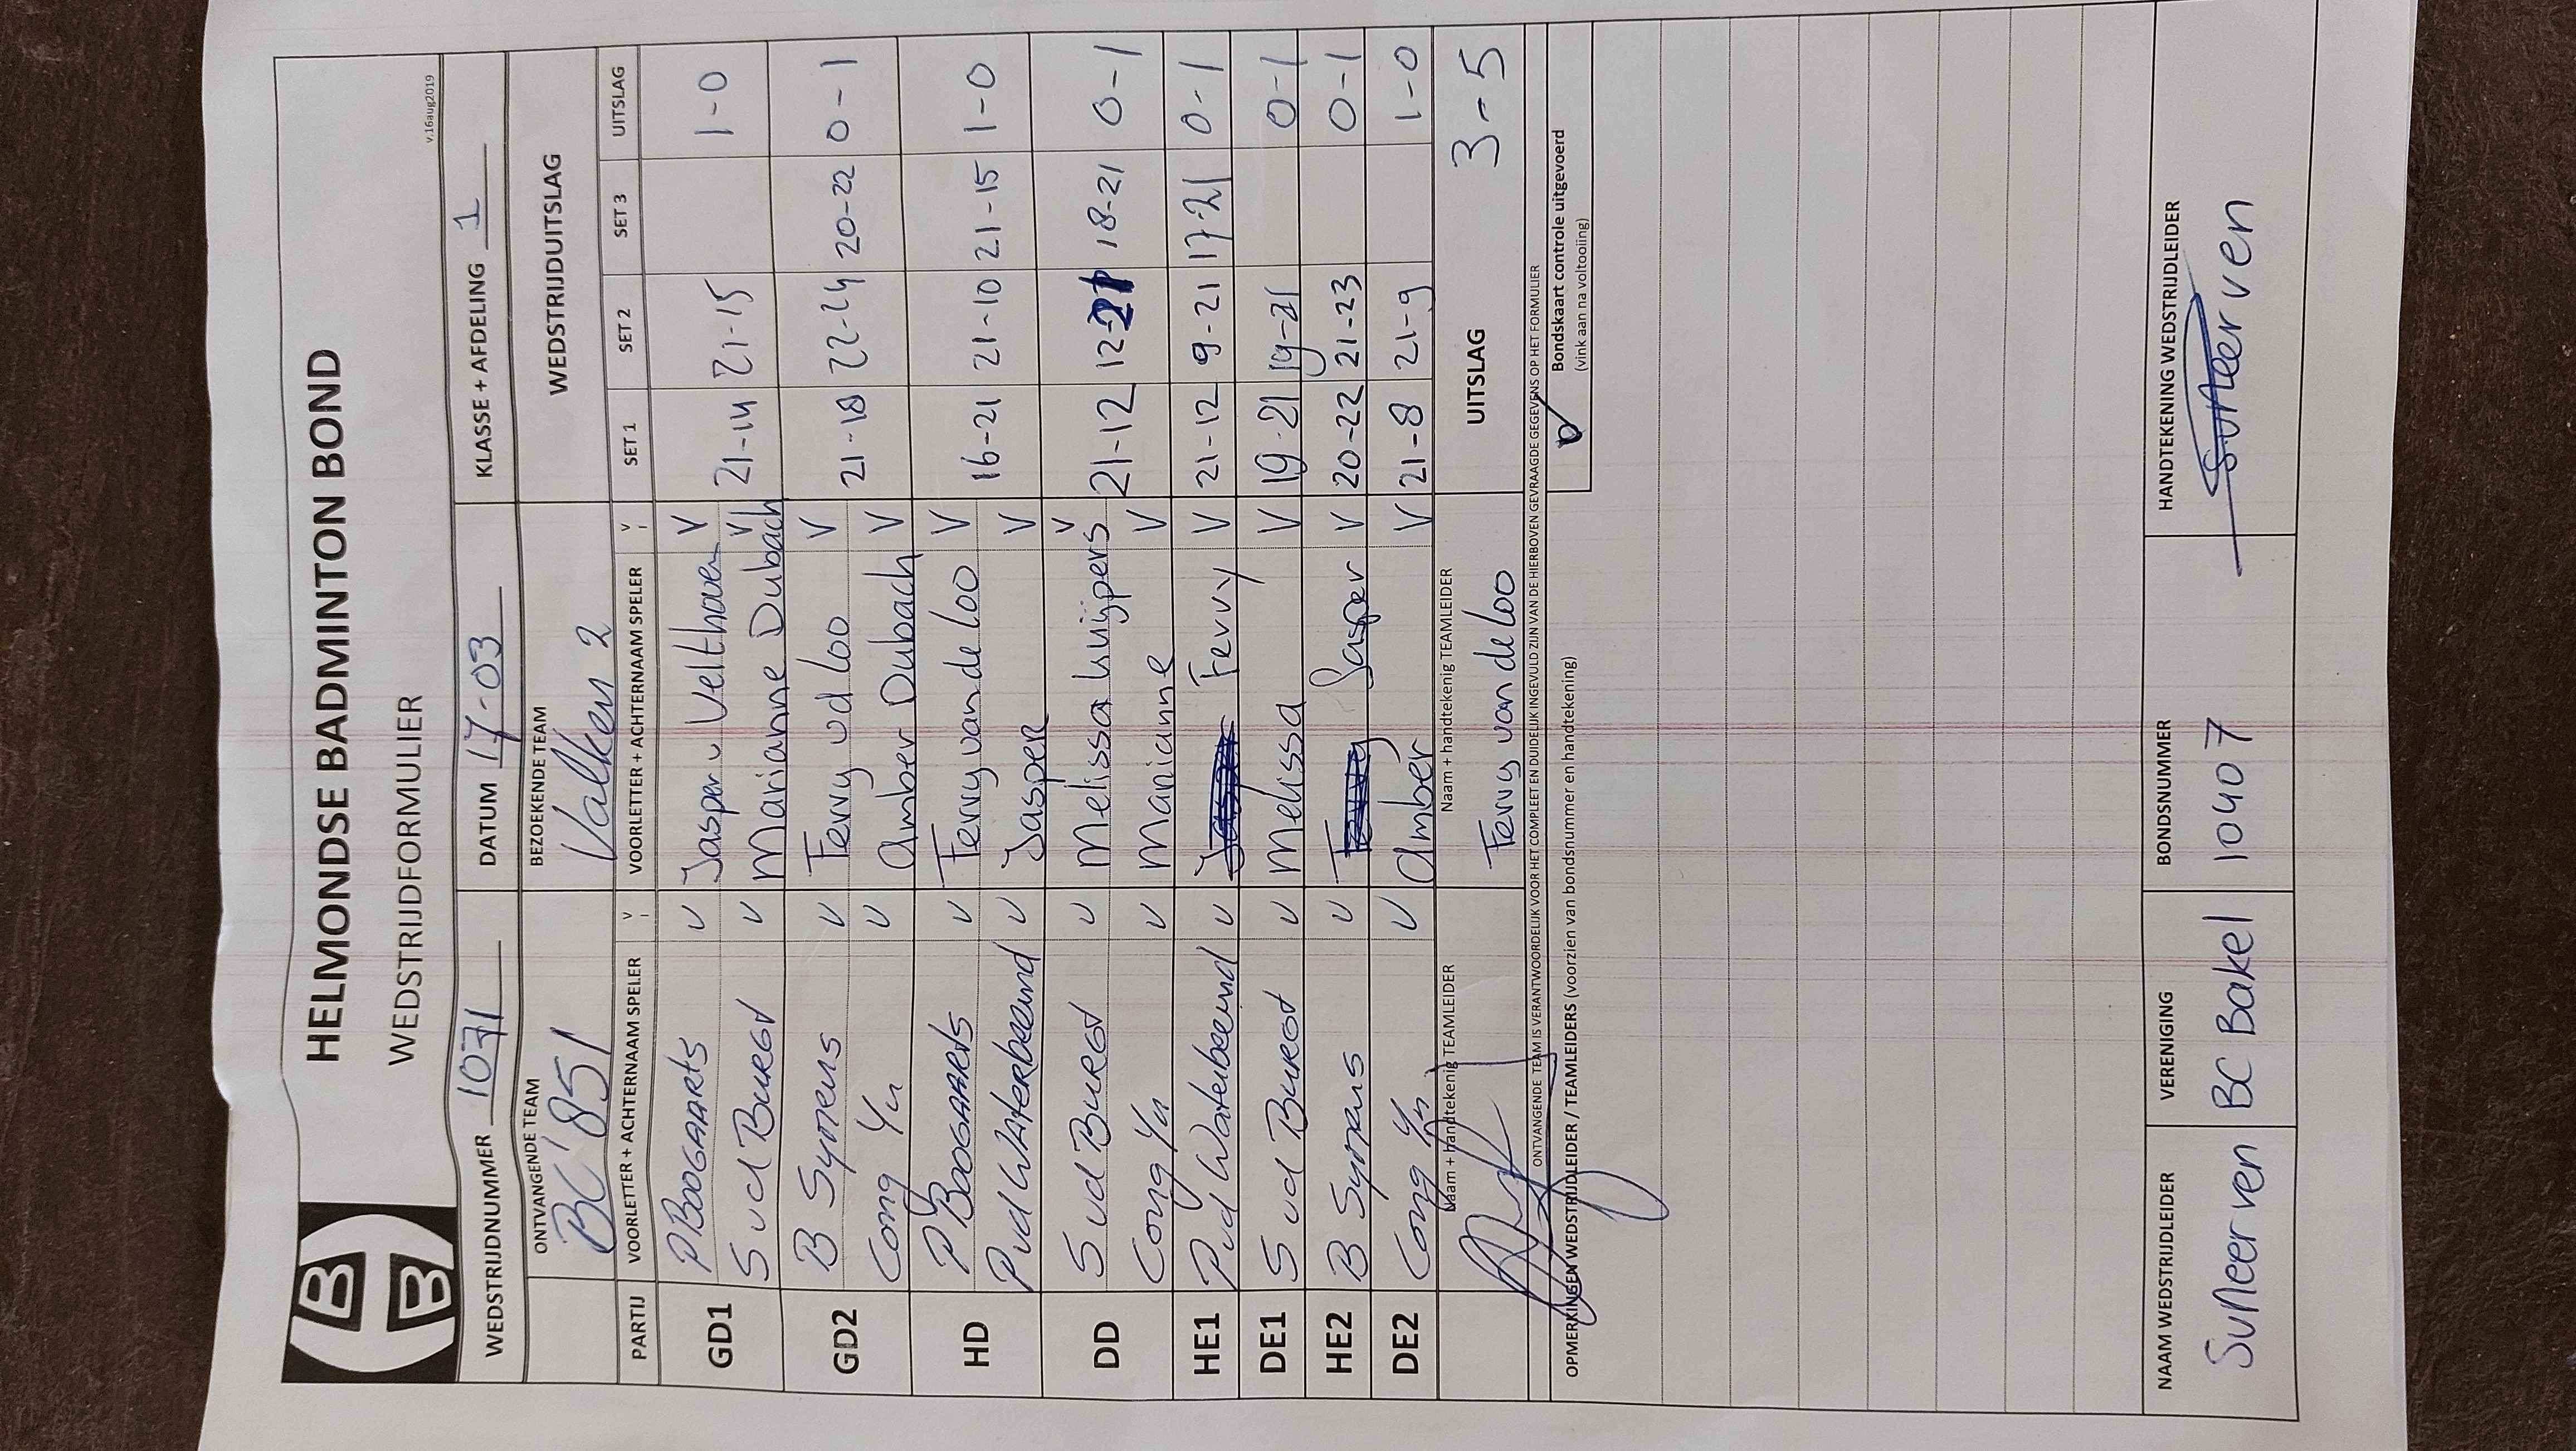 HELMONDSE BADMINTON BOND
WEDSTRIJDFORMULIER
v.16aug2019
WEDSTRIJDNUMMER 1071 DATUM 17-03 KLASSE + AFDELING 1
ONTVANGENDE TEAM BEZOEKENDE TEAM WEDSTRIJDUITSLAG
BC '85 1 Valken 2
PARTIJ VOORLETTER + ACHTERNAAM SPELER V VOORLETTER + ACHTERNAAM SPELER V SET 1 SET 2 SET 3 UITSLAG
GD1 P BOOGAARTS V Jasper v Velthoven V 21-14 21-15 1-0
S vd BURGT V Marianne Dubach V
GD2 B Symens V Ferry vd loo V 21-18 22-24 20-22 0-1
Cong Yu V Amber Dubach V
HD P BOOGAARTS V Ferry van de loo V 16-21 21-10 21-15 1-0
P vd WATERBEEMD V Jasper V
DD S vd BURGT V Melissa Kuijpers V 21-12 12-21 18-21 0-1
Cong Yu V Marianne V
HE1 P vd Waterbeemd V Ferry V 21-12 9-21 17-21 0-1
DE1 S vd BURGT V Melissa V 19-21 19-21 0-1
HE2 B Symens V Jasper V 20-22 21-23 0-1
DE2 Cong Yu V Amber V 21-8 21-9 1-0
Naam + handtekenig TEAMLEIDER Naam + handtekenig TEAMLEIDER UITSLAG 3-5
Ferry van de loo
ONTVANGENDE TEAM IS VERANTWOORDELIJK VOOR HET COMPLEET EN DUIDELIJK INGEVULD ZIJN VAN DE HIERBOVEN GEVRAAGDE GEGEVENS OP HET FORMULIER
OPMERKINGEN WEDSTRIJDLEIDER / TEAMLEIDERS (voorzien van bondsnummer en handtekening)
Bondskaart controle uitgevoerd
(vink aan na voltooiing)
NAAM WEDSTRIJDLEIDER VERENIGING BONDSNUMMER HANDTEKENING WEDSTRIJDLEIDER
S v Neerven BC Bakel 10407 S v Neerven